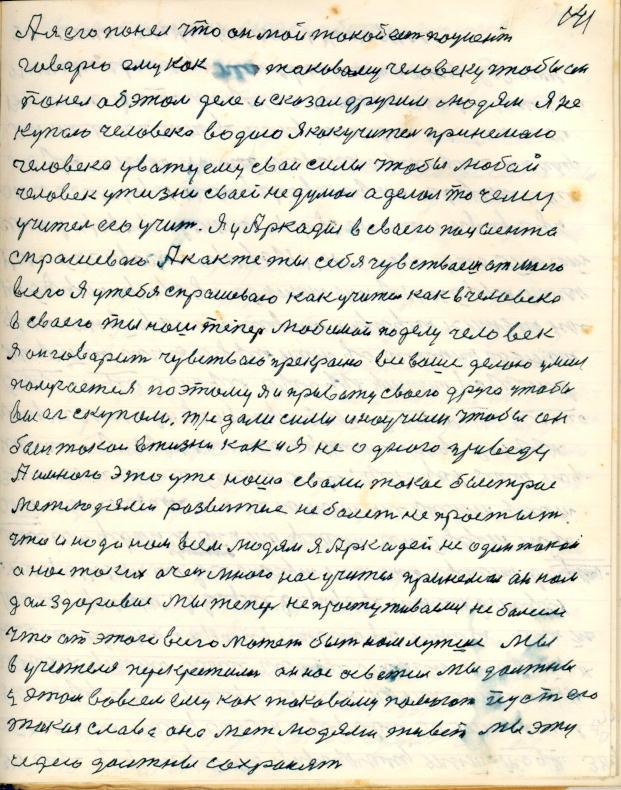 141
А я его понел что он мой такой ест пациент
говарю ему как это таковому человеку чтобы он
понел об этом деле и сказал другим людям Я не
купаю человека водою Я как учител принемаю
человека увожу ему сваи силы чтобы любой
человек у жизни сваей не думал а делал то чему
учител его учит. Я у Аркадия в сваего пациента
спрашеваю А как же ты себя чувствваеш от моего
всего Я у тебя спрашеваю как учител как в человека
в сваего ты наш тепер любимой по делу человек
А он говарит чувствую прекрасно все ваше делаю у меня
получается поэтому я и привожу своего друга чтобы
вы ег скупали, и дали силы и научили чтобы он
был такой в жизни как и я не одного приведу
А много Это уже наша с вами такое быстрое
меж людями развитие не болет не простыт.
что и нада нам всем людям Я Аркадей не один такой
а нас таких очен много нас учител принемал он нам
дал здоровие мы тепер не простуживаемся не болеем
что от этого всего может быт нам лутше Мы
в учителя перекрестили он нас осветил Мы должны
у этом вовсем ему как таковому помогат пуст его
такая слава она меж людями живет мы эту
идею должны сахранят